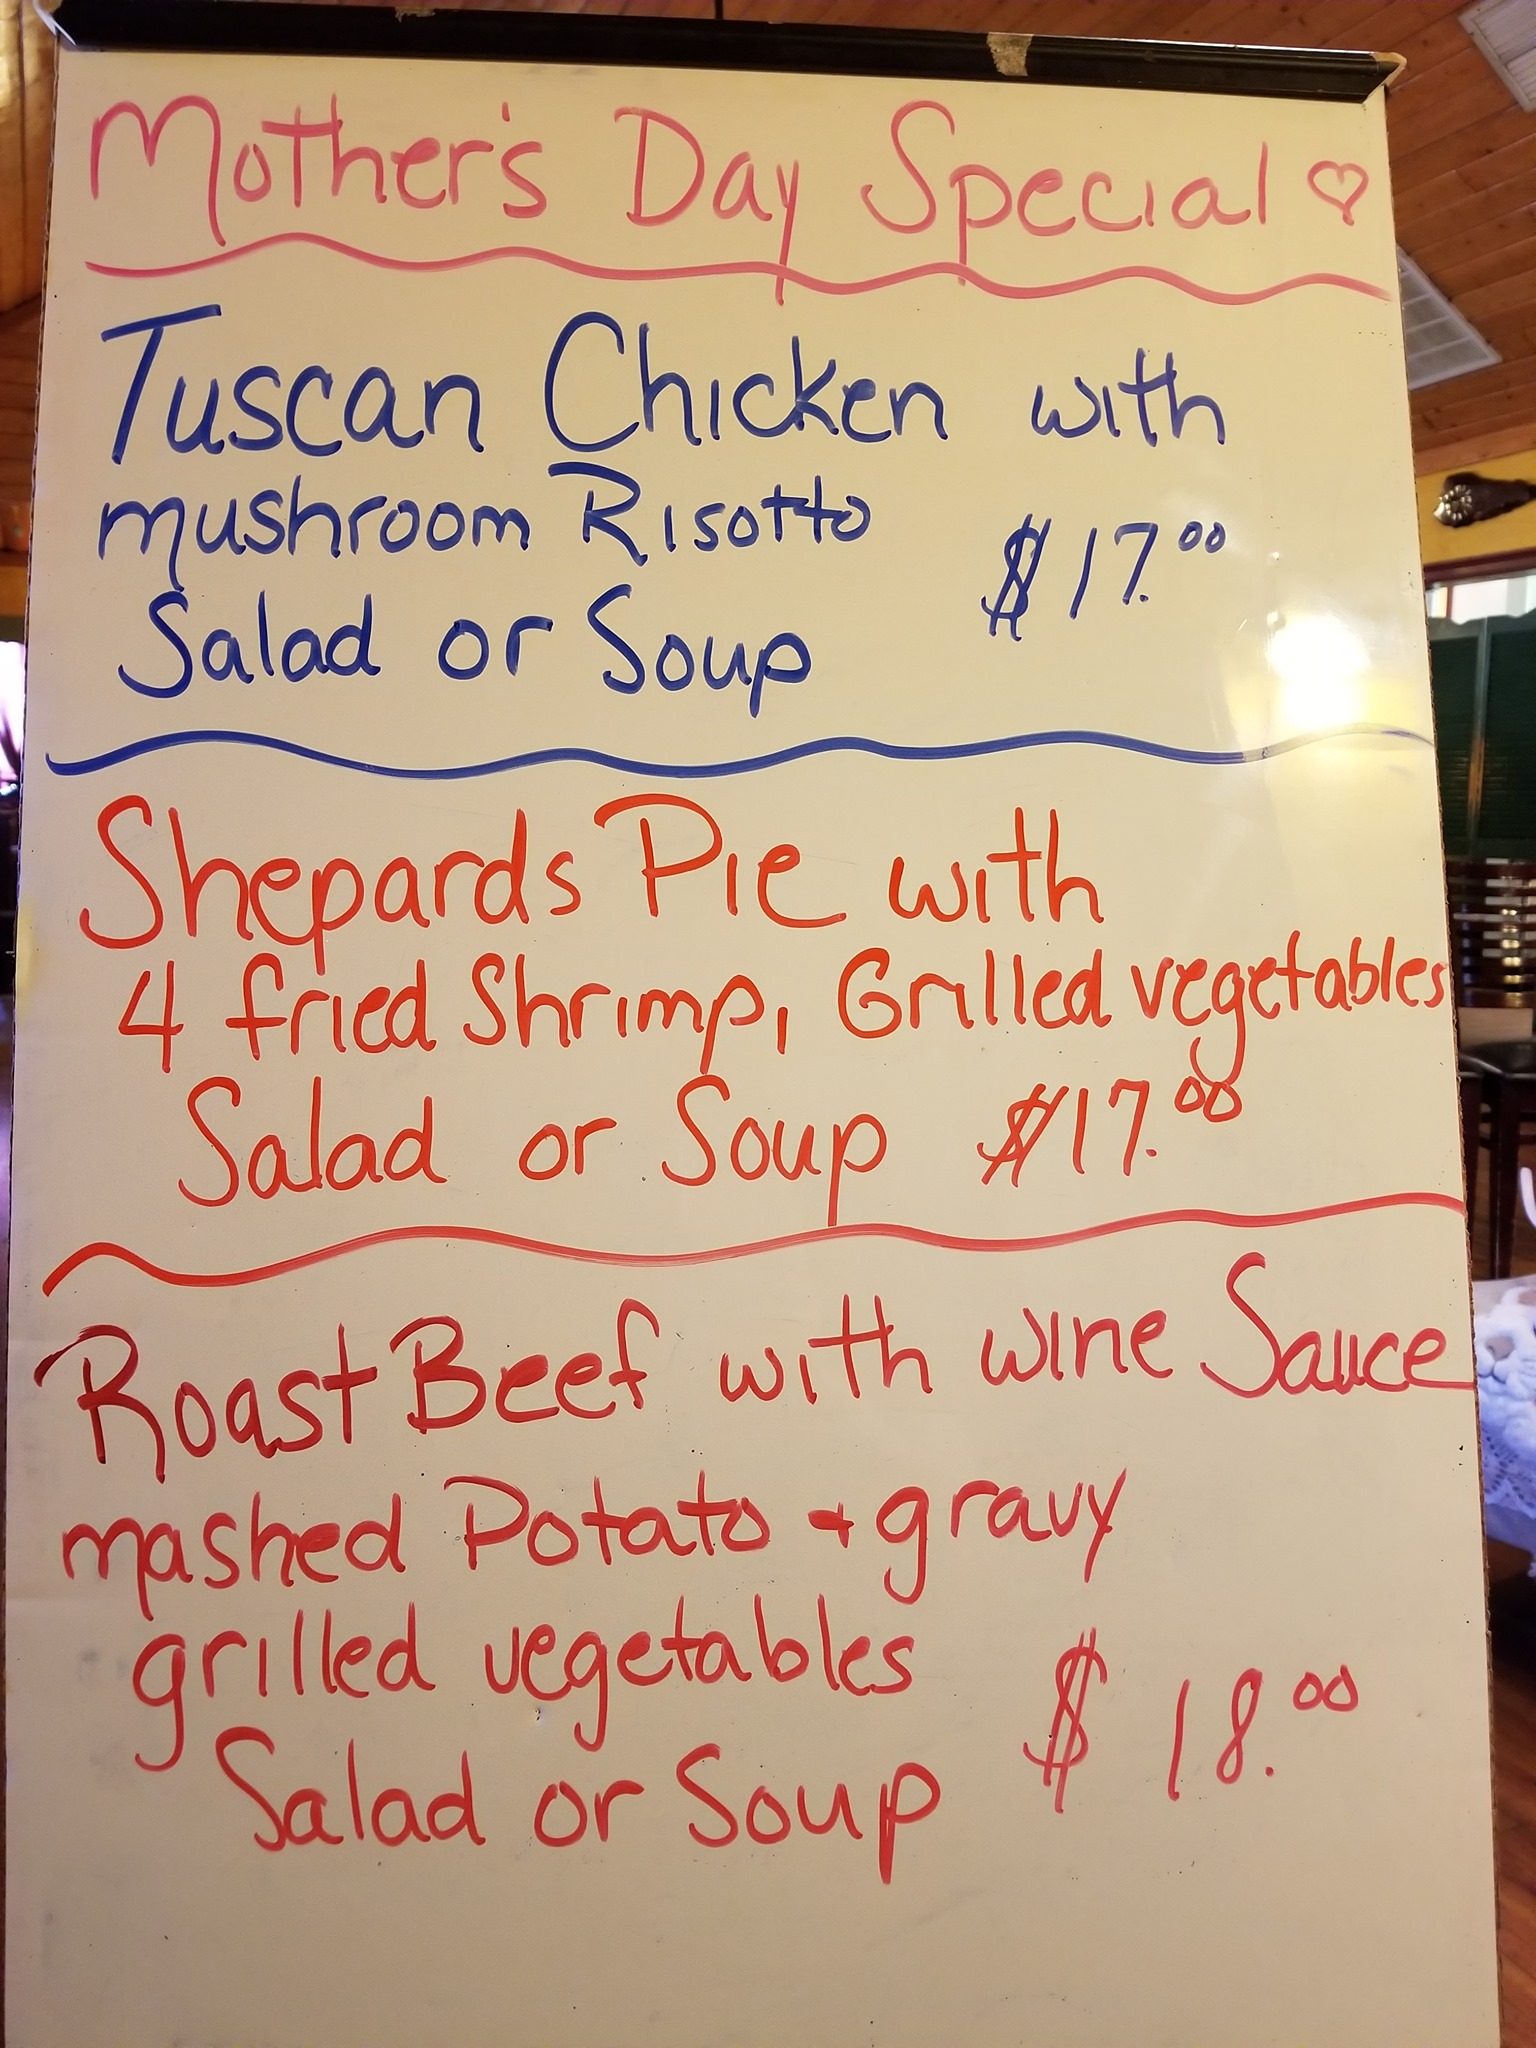 Mother's Day Special ♡
Tuscan Chicken with
mushroom Risotto
$17.00
Salad or Soup
Shepards Pie with
4 fried Shrimp, Grilled vegetables
Salad or Soup $17.00
Roast Beef with wine Sauce
mashed Potato + gravy
grilled vegetables
$18.00
Salad or Soup